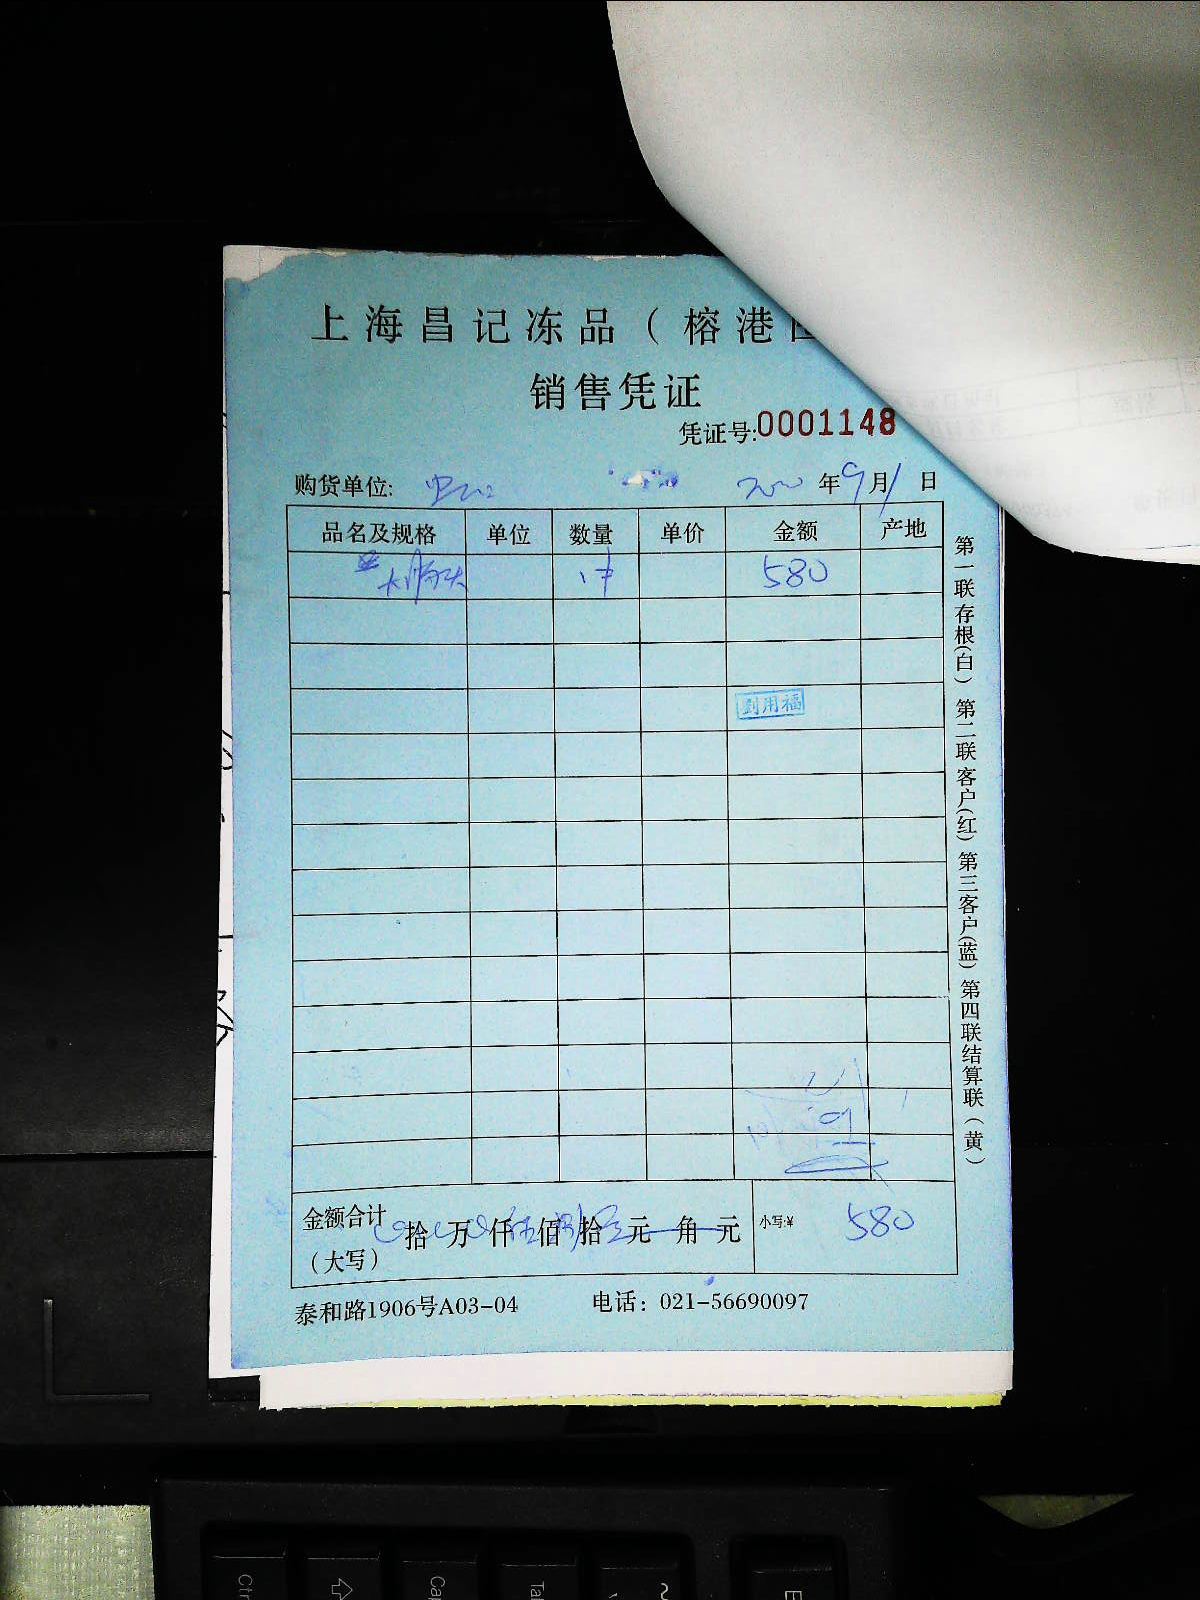 上海昌记冻品（榕港
销售凭证
凭证号:0001148
购货单位: 年9月1日
品名及规格 单位 数量 单价 金额 产地
1件 580
刘用福
金额合计（大写） 拾 万 仟伍佰捌拾 元 角 元 小写:¥ 580
泰和路1906号A03-04 电话：021-56690097
第一联存根(白) 第二联客户(红) 第三客户(蓝) 第四联结算联(黄)